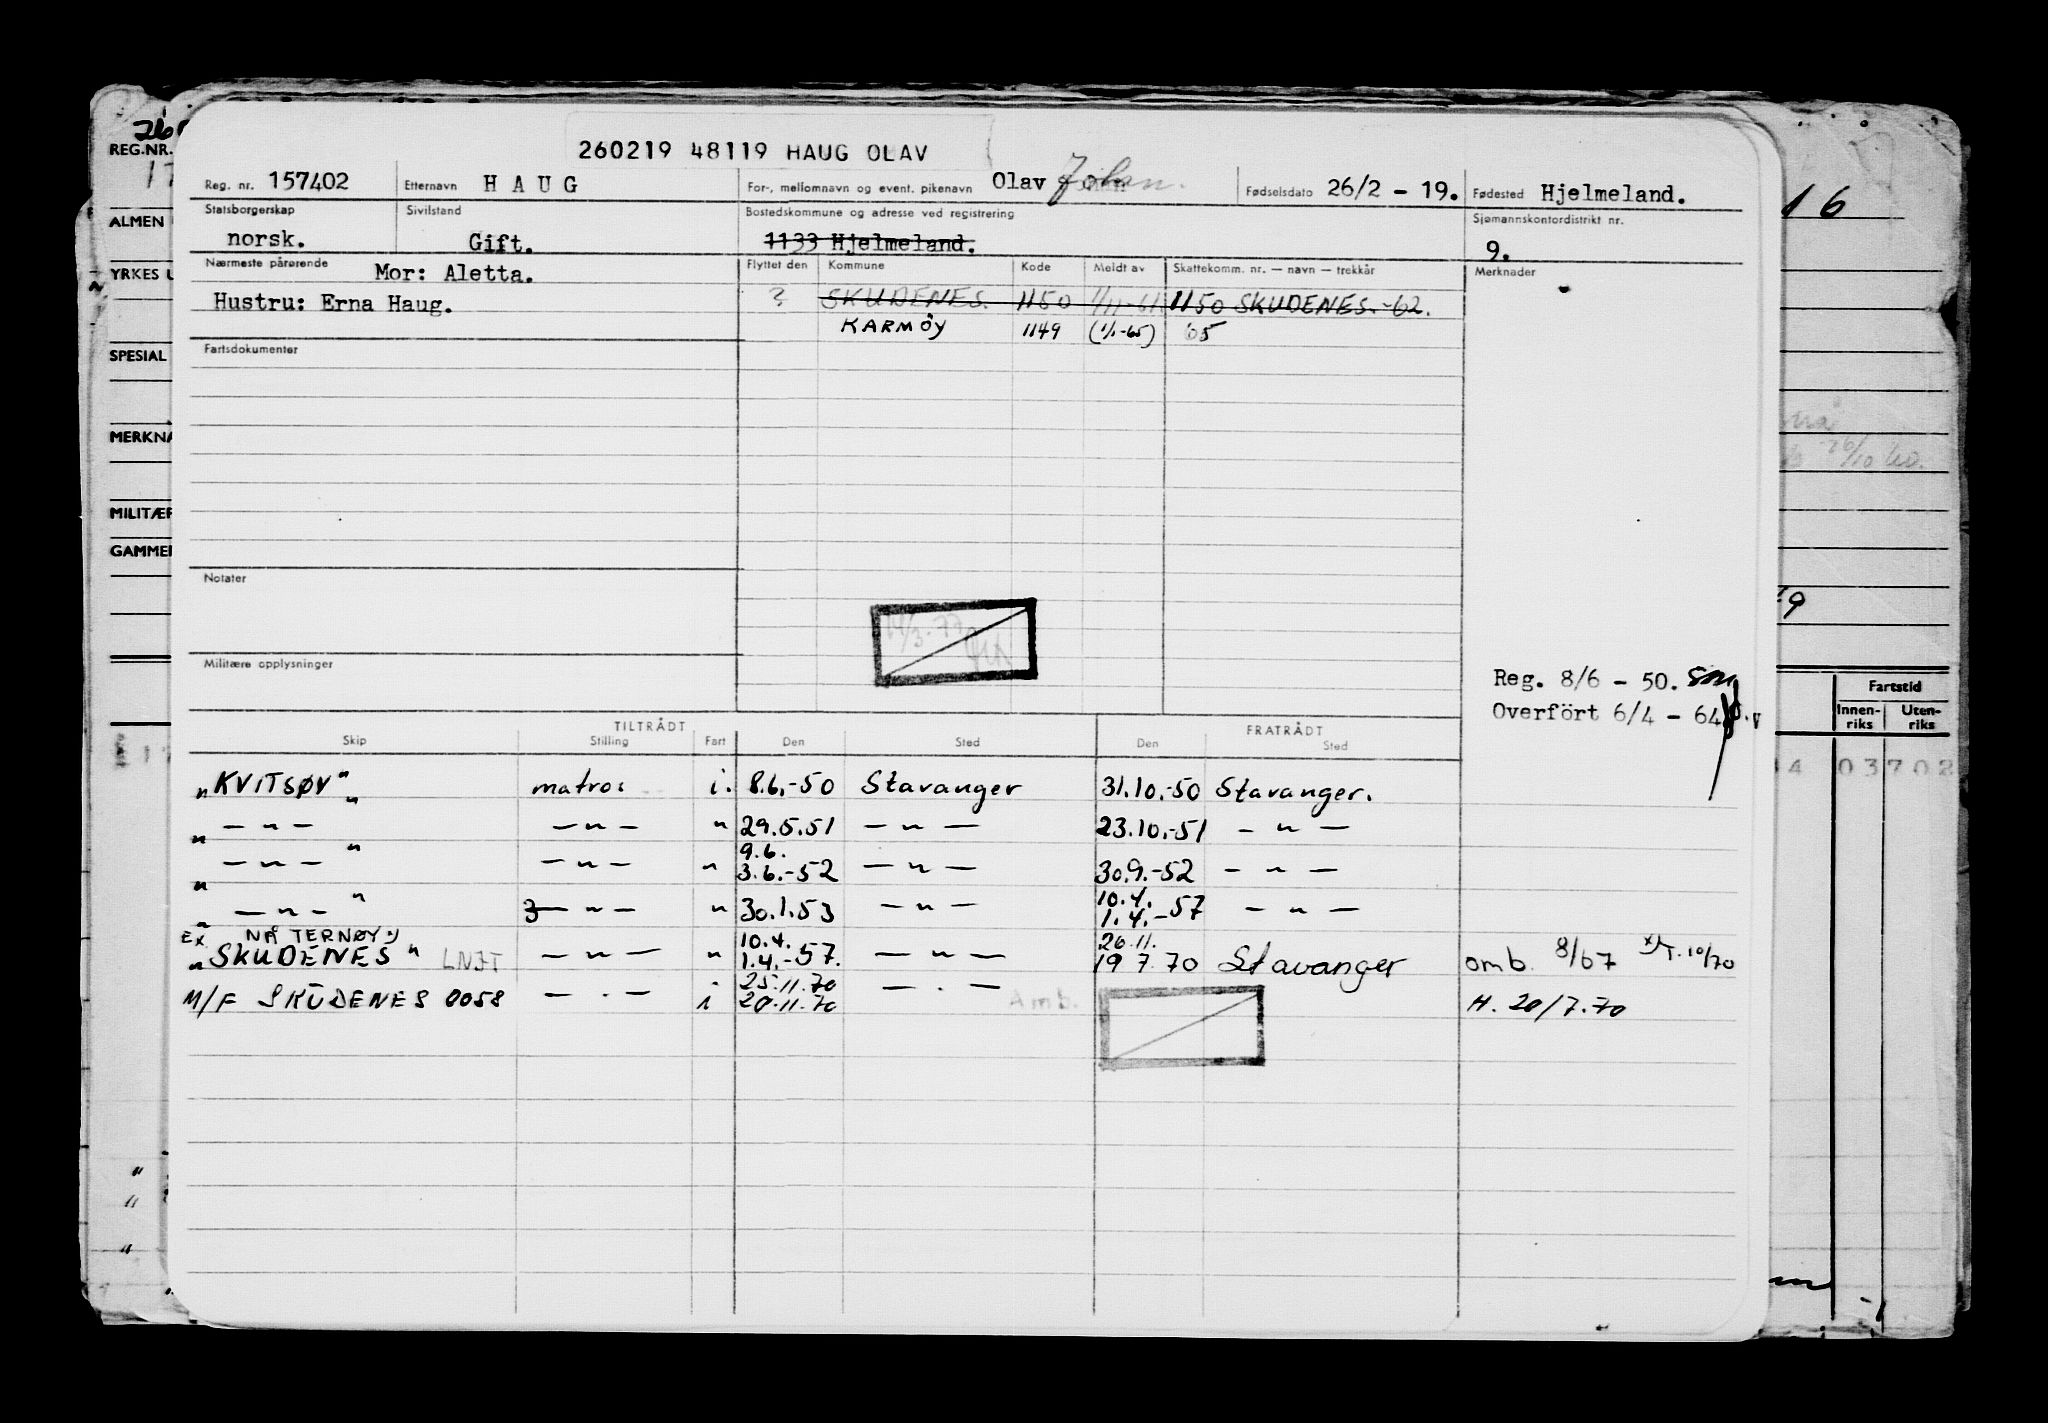 260219 48119 HAUG OLAV
Reg. nr. 157402 Etternavn HAUG For-, mellomnavn og event. pikenavn Olav Johan. Fødselsdato 26/2 - 19. Fødested Hjelmeland.
Statsborgerskap Sivilstand Bostedskommune og adresse ved registrering Sjømannskontordistrikt nr.
norsk. Gift. 1133 Hjelmeland. 9.
Nærmeste pårørende Mor: Aletta. Flyttet den Kommune Kode Meldt av Skattekomm. nr. — navn — trekkår Merknader
Hustru: Erna Haug. ? SKUDENES. 1150 1/11-61 1150 SKUDENES. -62.
KARMÖY 1149 (1/1-65) 65
Fartsdokumenter
Notater
14/3-77
Militære opplysninger
Reg. 8/6 - 50.
Overfört 6/4 - 64
TILTRÅDT FRATRÅDT
Skip Stilling Fart Den Sted Den Sted
"KVITSØY" matros i. 8.6.-50 Stavanger 31.10.-50 Stavanger.
" — " — — " — " 29.5.51 — " — 23.10.-51 — " —
9.6.
" — " — " — " — " 3.6.-52 — " — 30.9.-52 — " —
10.4.
" — " — " — " — " 30.1.53 — " — 1.4.-57 — " —
EX NÅ TERNØY 10.4. 26.11.
"SKUDENES" LNJT — " — " 1.4.-57. — " — 19 7 70 Stavanger omb. 8/67 10/70
25.11.70
M/F SKUDENES 0058 — " — i 20.11.70 — " — Amb. H. 20/7.70
REG.NR.
17
ALMEN
YRKES U
SPESIAL
MERKNA
MILITÆR
GAMMEL
16
26/10 60.
29
Fartstid
Innen-riks Uten-riks
4 03 702